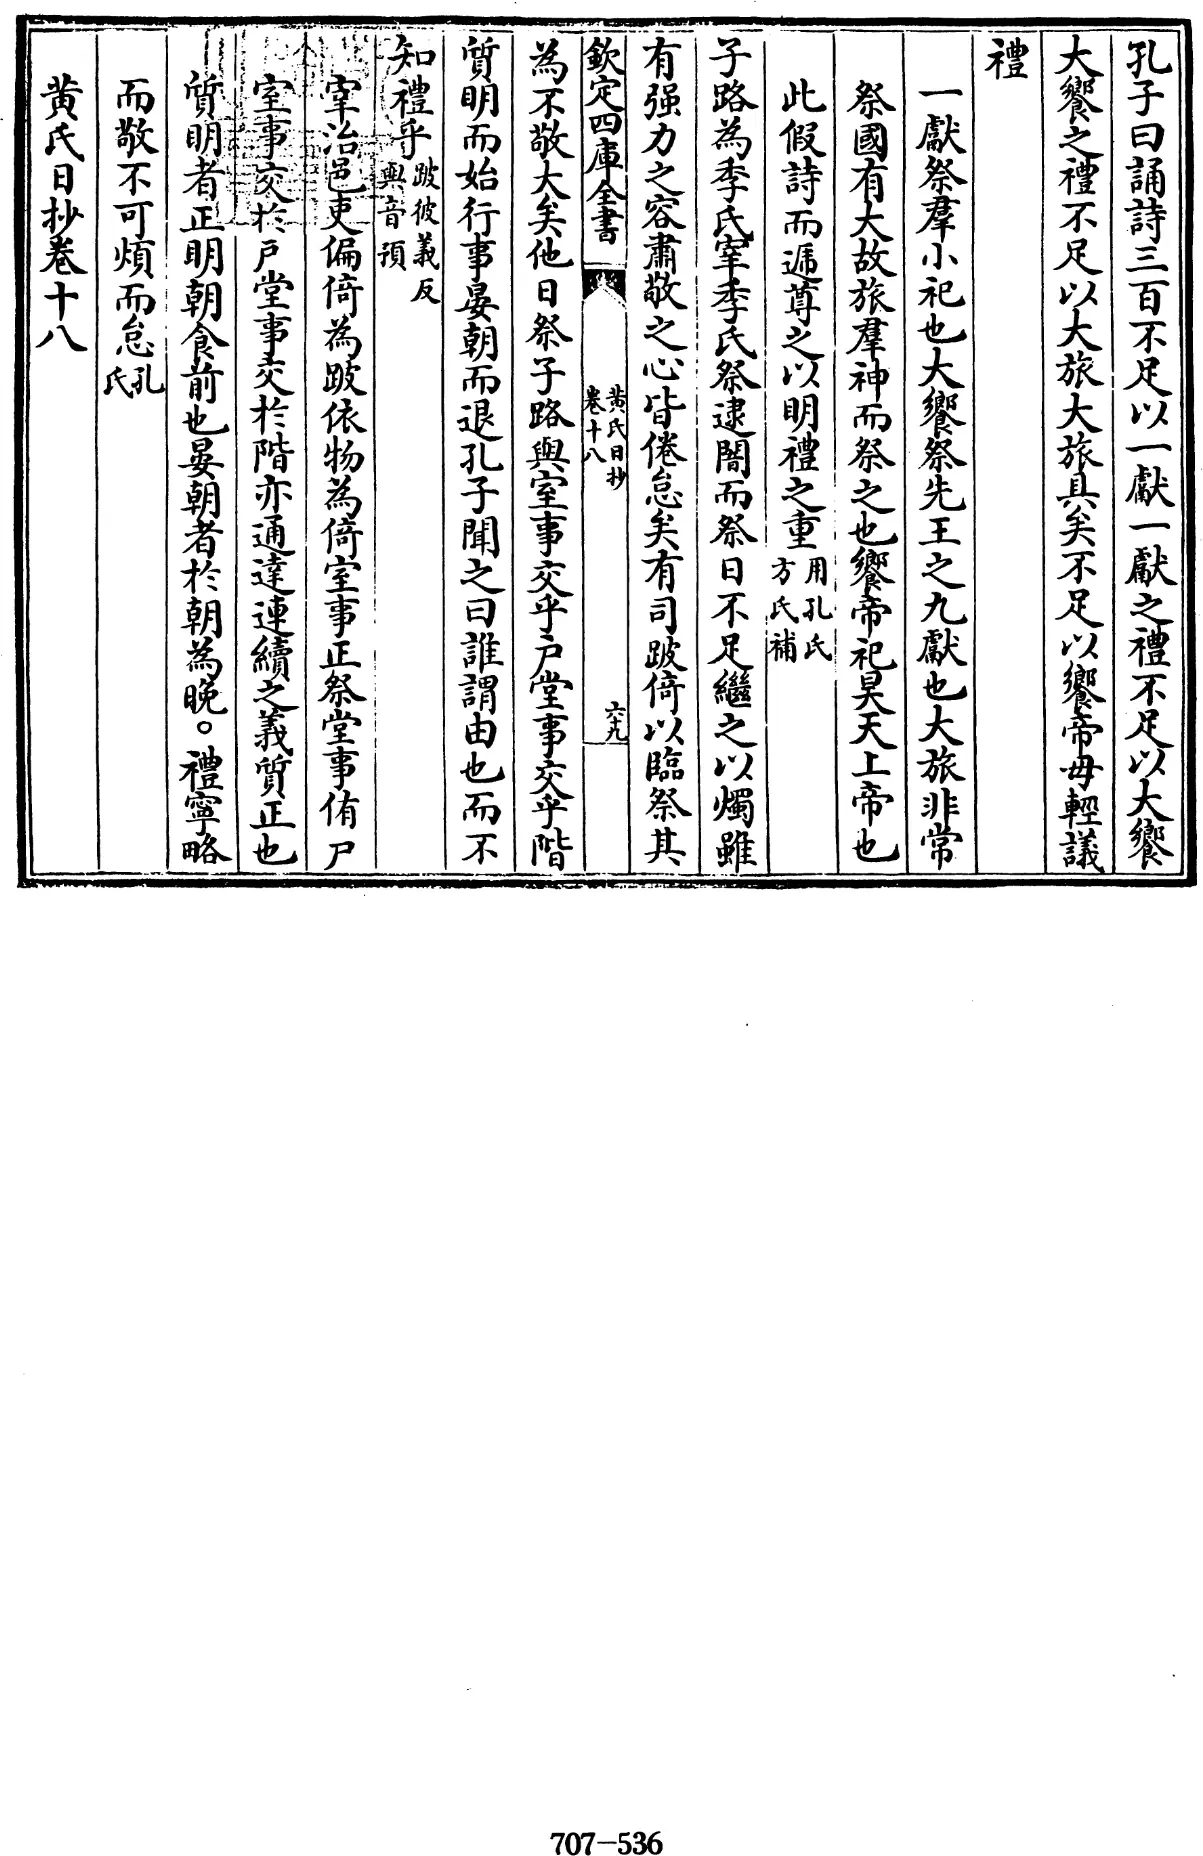 孔子曰誦詩三百不足以一獻一獻之禮不足以大饗
大饗之禮不足以大旅大旅具矣不足以饗帝毋輕議
禮
一獻祭羣小祀也大饗祭先王之九獻也大旅非常
祭國有大故旅羣神而祭之也饗帝祀昊天上帝也
此假詩而遞尊之以明禮之重用孔氏方氏補
子路為季氏宰季氏祭逮闇而祭日不足繼之以燭雖
有强力之容肅敬之心皆倦怠矣有司跛倚以臨祭其
欽定四庫全書
黄氏日抄
卷十八
六十九
為不敬大矣他日祭子路與室事交乎戶堂事交乎階
質明而始行事晏朝而退孔子聞之曰誰謂由也而不
知禮乎跛彼義反與音預
宰治邑吏偏倚為跛依物為倚室事正祭堂事侑尸
室事交於戶堂事交於階亦通達連續之義質正也
質明者正明朝食前也晏朝者於朝為晚○禮寧略
而敬不可煩而怠孔氏
黄氏日抄卷十八
707-536